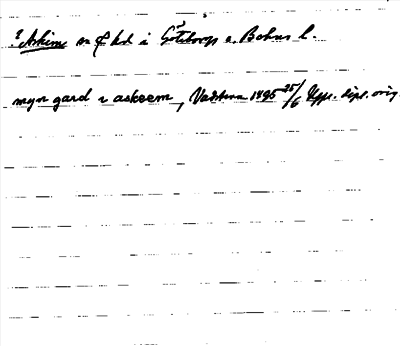 ? Askim sn o hd i Göteborgs o. Bohus l.
myn gard i askeem, Vadstena 1495 25/6 Upps. dipl. orig.